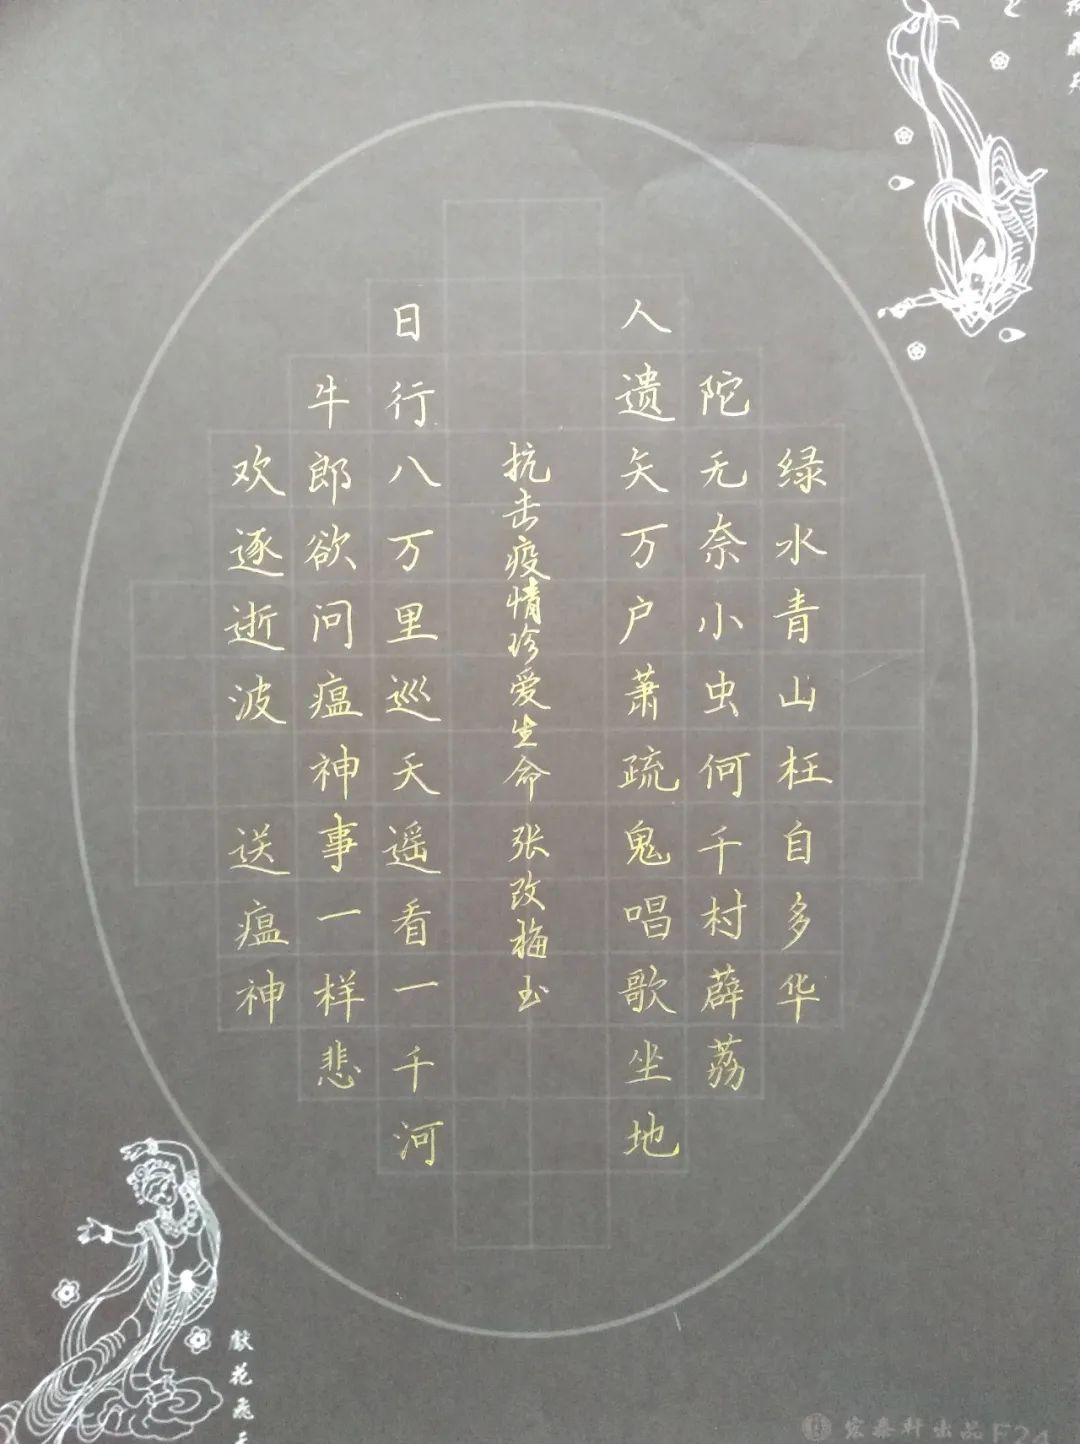 绿水青山枉自多华
陀无奈小虫何千村薜荔
人遗矢万户萧疏鬼唱歌坐地
抗击疫情珍爱生命 张改梅玉
日行八万里巡天遥看一千河
牛郎欲问瘟神事一样悲
欢逐逝波 送瘟神
献花飛天
宏泰轩出品 F24